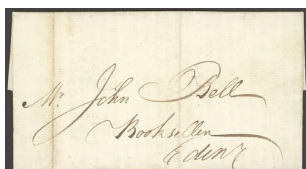 Mr. John Bell
Bookseller
Edinr